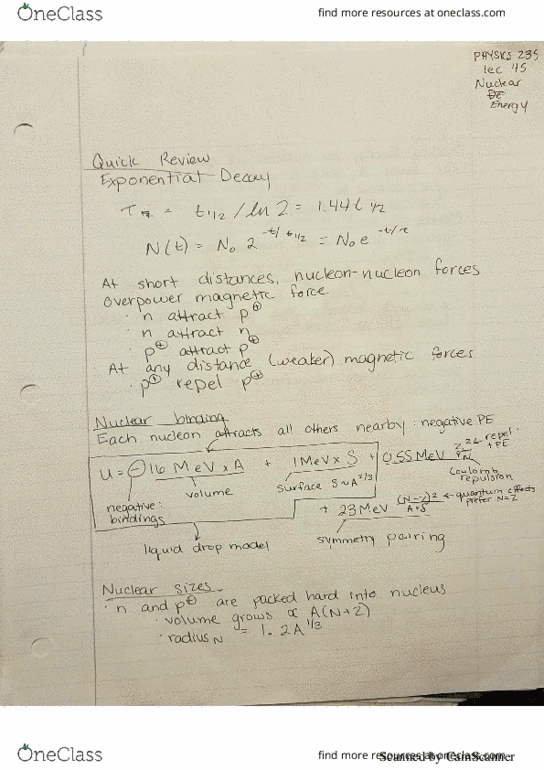 OneClass
find more resources at oneclass.com
PHYSKS 235
lec 45
Nuclear
Energy
Quick Review
Exponential Decay
= t1/2 / ln 2 = 1.44t 1/2
N(t) = N₀ 2^-t/t1/2 = N₀ e^-t/τ
At short distances, nucleon-nucleon forces
overpower magnetic force.
· n attract p⊕
· n attract n
· p⊕ attract p⊕
At any distance (weaker) magnetic forces
· p⊕ repel p⊕
Nuclear binding
Each nucleon attracts all others nearby : negative PE
U = -16 MeV x A + 1MeV x S + 0.55 MeV
repel
+PE
volume
surface S~A^2/3
Coulomb
repulsion
negative:
bindings
+ 23MeV ← quantum effects
prefer N=Z
liquid drop model
symmetry pairing
Nuclear sizes
· n and p⊕ are packed hard into nucleus
· volume grows ∝ A(N+Z)
· radius N = 1.2A^1/3
OneClass
find more resources at oneclass.com
Scanned by CamScanner